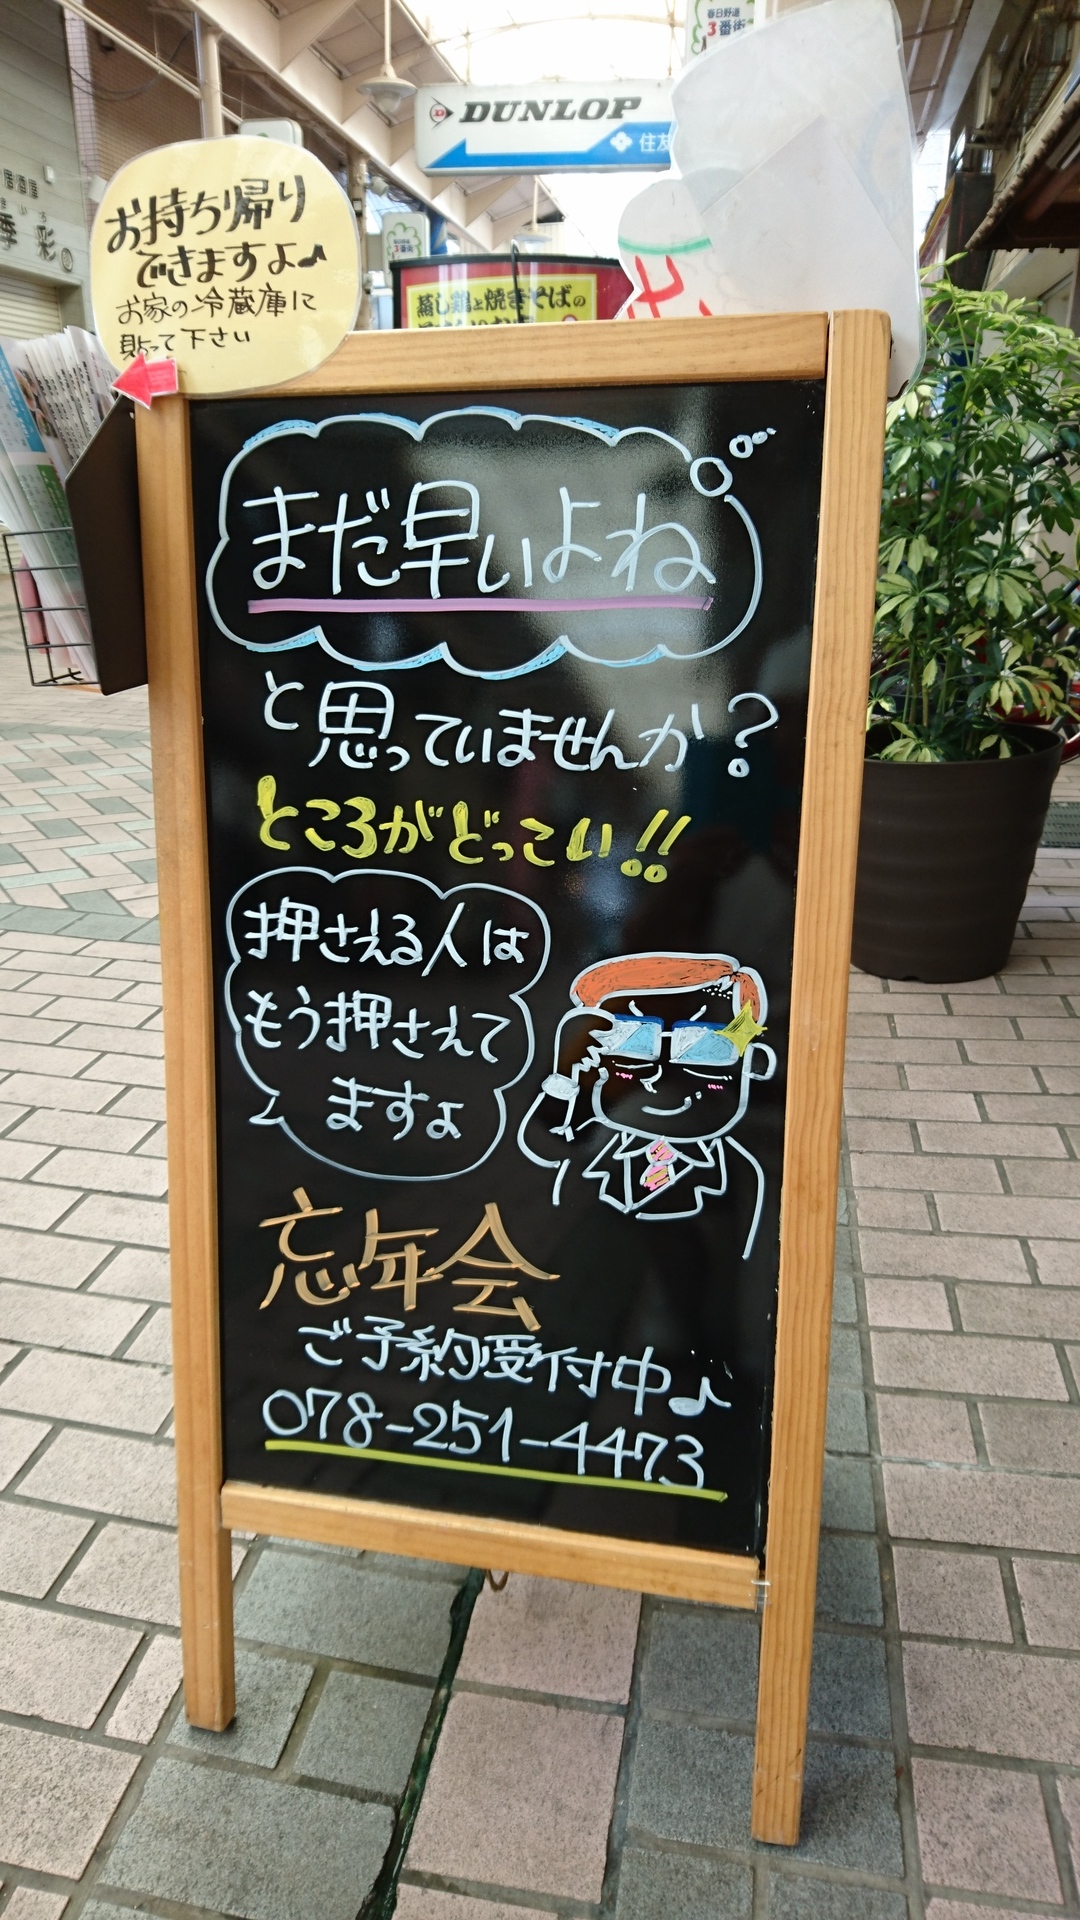 春日野道
3番街
DUNLOP
住友
居酒屋
季彩
お持ち帰り
できますよ♪
お家の冷蔵庫に
貼って下さい
3番街
蒸し鶏と焼きそばの
まだ早いよね
と思っていませんか?
ところがどっこい!!
押さえる人は
もう押さえて
ますよ
忘年会
ご予約受付中♪
078-251-4473